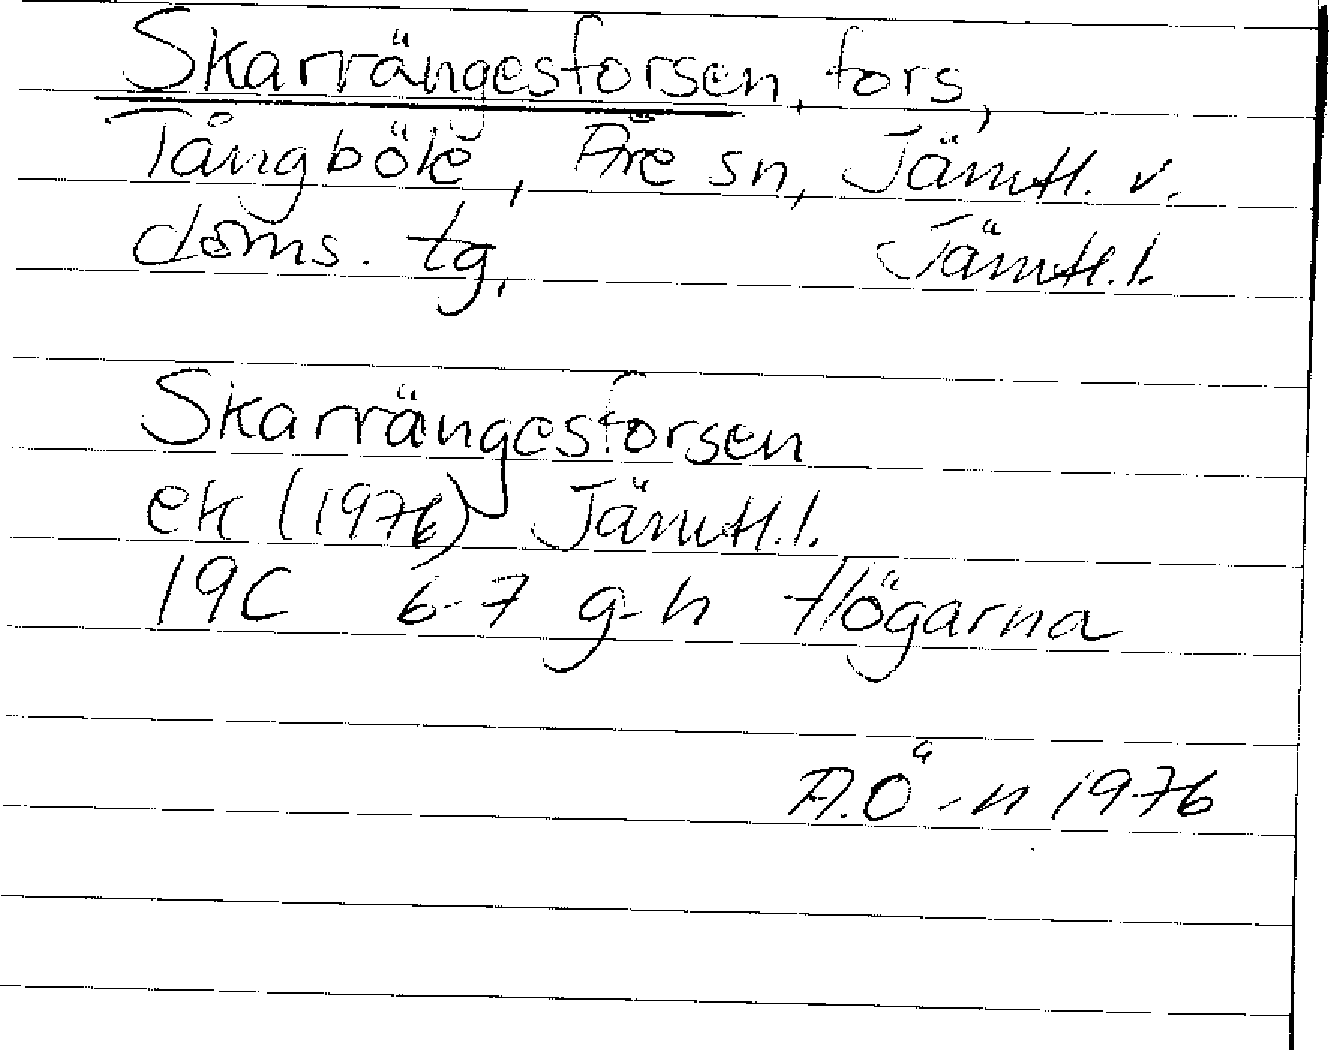 Skarrängesforsen, fors,
Tångböle, Åre sn, Jämtl. v.
doms. tg, Jämtl. l.
Skarrängesforsen
ek (1976) Jämtl. l.
19C 6-7 g-h Högarna
A.Ö-n 1976